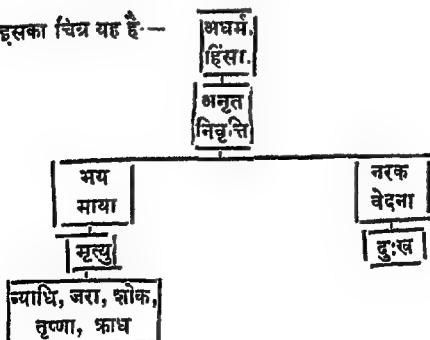 इसका चित्र यह है—
अधर्म.
हिंसा.
अनृत
निवृत्ति
भय
माया
नरक
वेदना
मृत्यु
दुःख
व्याधि, जरा, शोक,
तृष्णा, क्राध